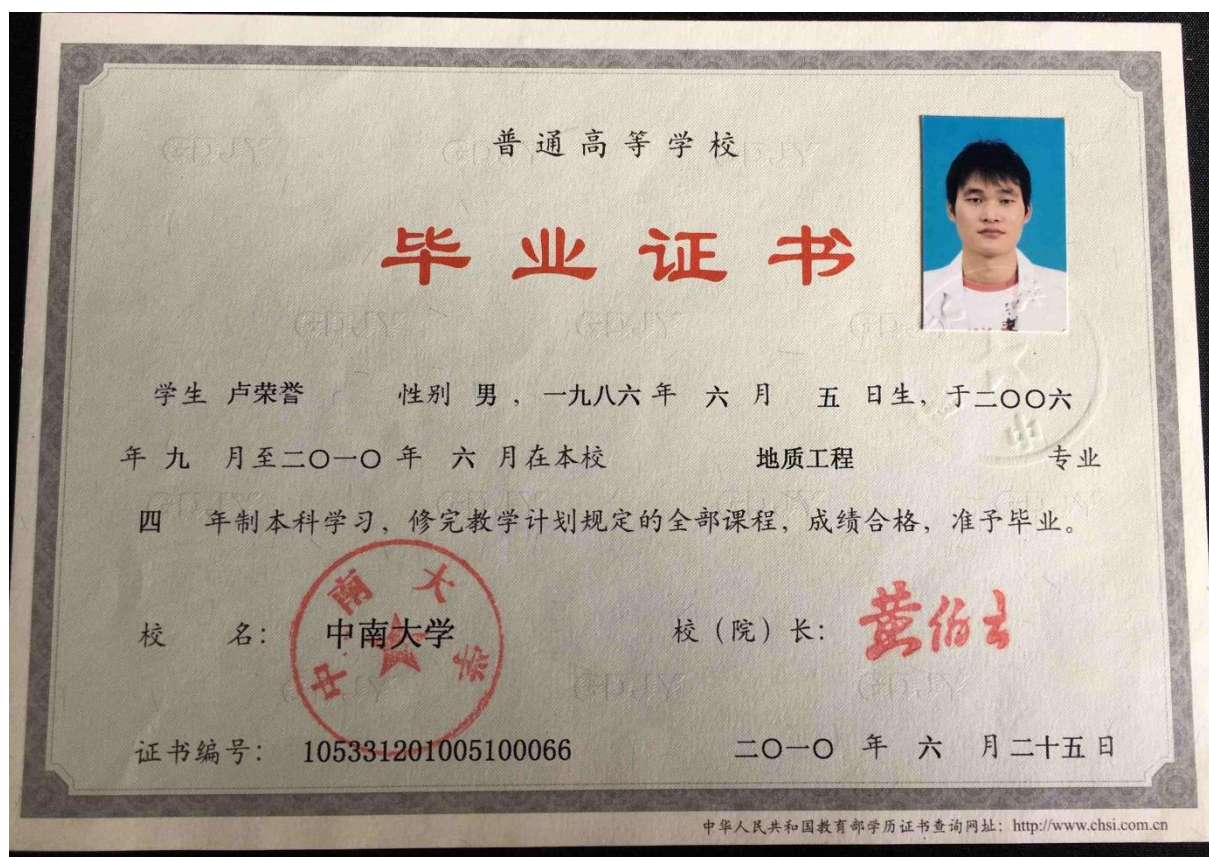 普通高等学校
毕业证书
学生 卢荣誉 性别 男，一九八六年 六 月 五 日生，于二〇〇六
年 九 月至二〇一〇 年 六 月在本校 地质工程 专业
四 年制本科学习，修完教学计划规定的全部课程，成绩合格，准予毕业。
校 名： 中南大学 校（院）长： 黄伯云
中南大学
证书编号： 105331201005100066 二〇一〇 年 六 月二十五日
中华人民共和国教育部学历证书查询网址：http://www.chsi.com.cn